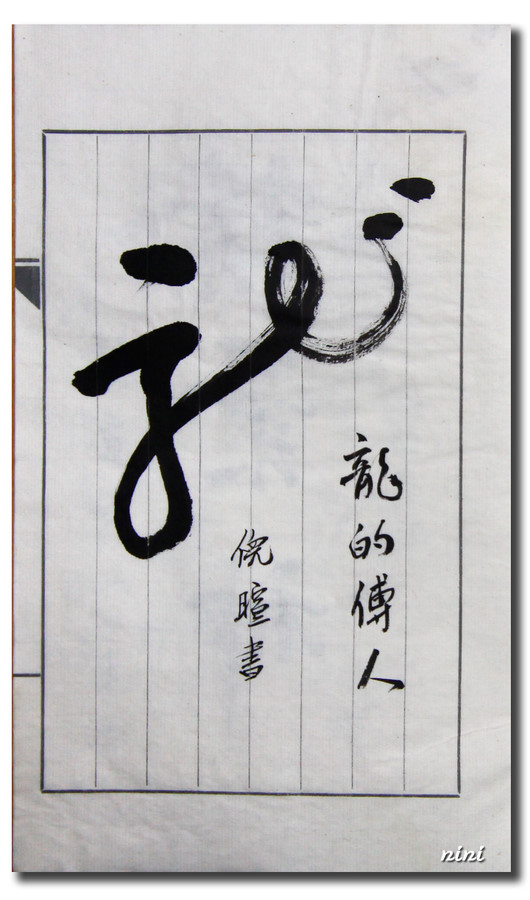 龍
龍的傅人
倪暄書
nini